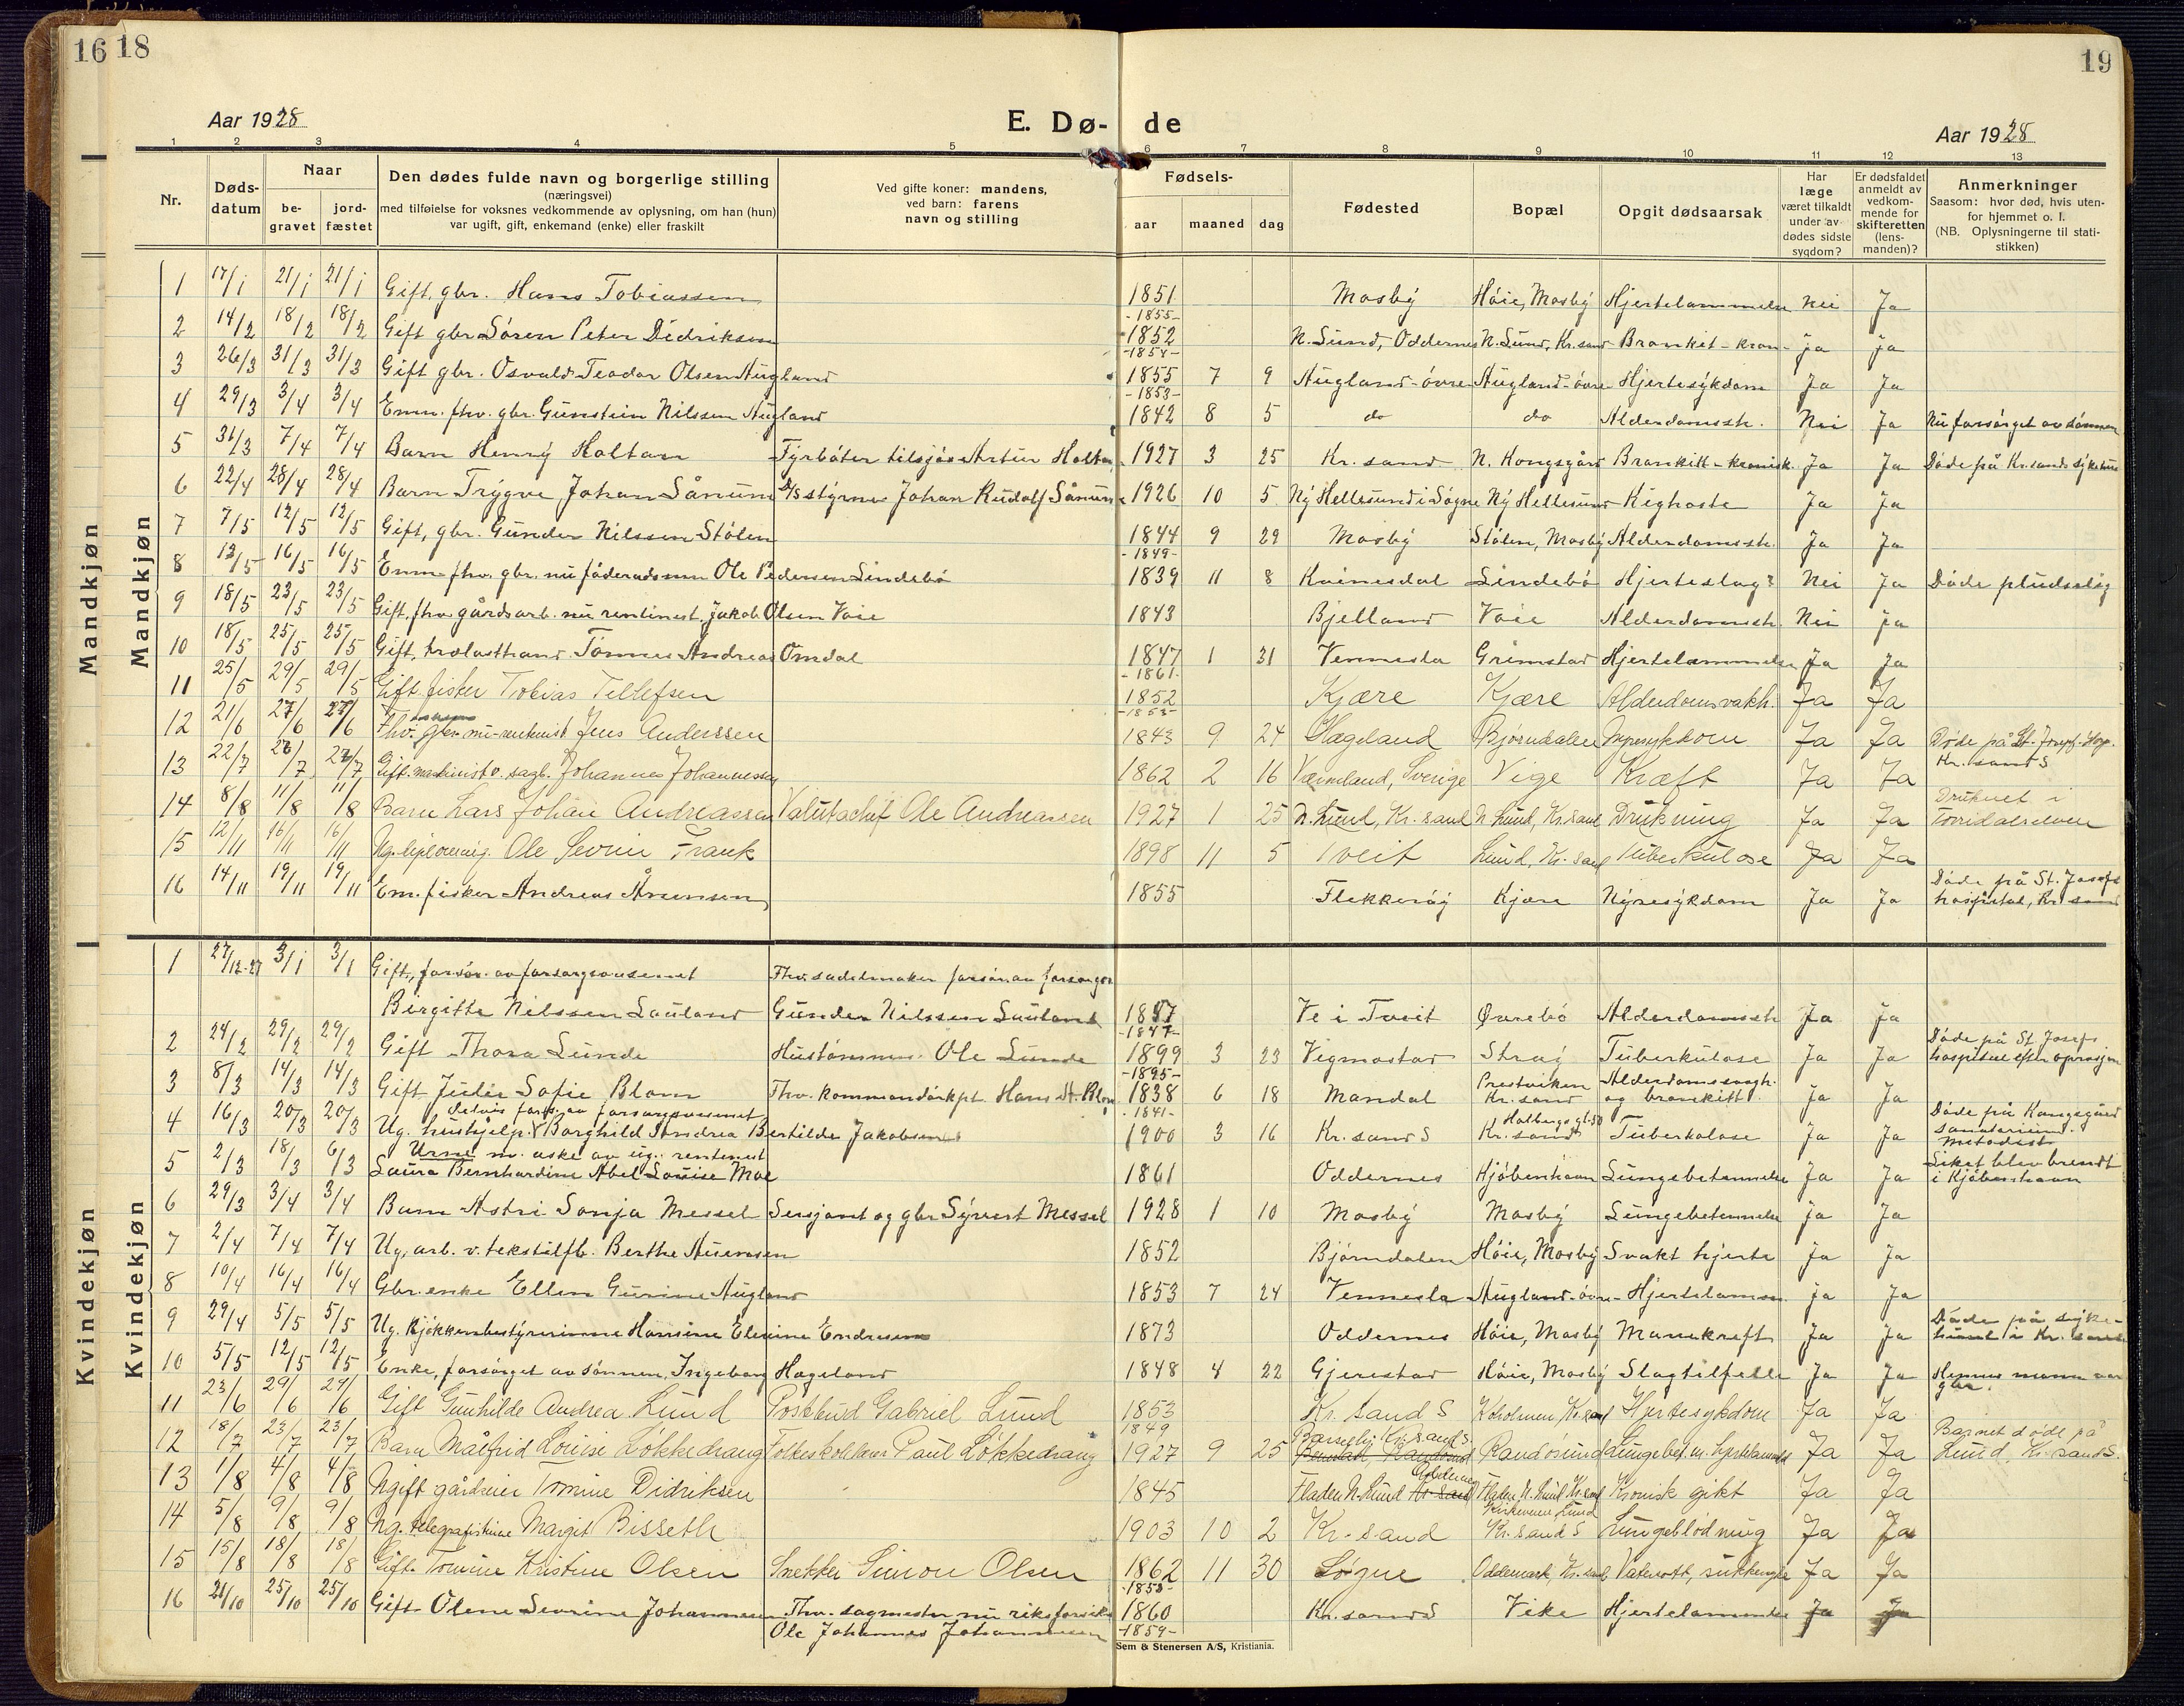 16 18
19
Aar 1928
E. Dø- de
Aar 1928
1 2 3 4 5 6 7 8 9 10 11 12 13
Nr.
Døds-datum
Naar
be-gravet
jord-fæstet
Den dødes fulde navn og borgerlige stilling
(næringsvei)
med tilføielse for voksnes vedkommende av oplysning, om han (hun)
var ugift, gift, enkemand (enke) eller fraskilt
Ved gifte koner: mandens,
ved barn: farens
navn og stilling
Fødsels-
aar maaned dag
Fødested
Bopæl
Opgit dødsaarsak
Har læge været tilkaldt under avdødes sidste sygdom?
Er dødsfaldet anmeldt av vedkom-mende for skifteretten (lens-manden)?
Anmerkninger
Saasom: hvor død, hvis uten-for hjemmet o. l.
(NB. Oplysningerne til stati-stikken)
Mandkjøn
Mandkjøn
1 17/1 21/1 21/1 Gift, gbr. Hans Tobiassen 1851 Mosby Høie, Mosby Hjertelammelse Nei Ja
-1855-
2 14/2 18/2 18/2 Gift gbr Søren Peter Didriksen 1852 N. Sund, Oddernes N. Sund, Kr.sand Bronkit-kron- ja ja
-1854-
3 26/3 31/3 31/3 Gift gbr. Osvald Teodor Olsen Augland 1855 7 9 Augland-øvre Augland-øvre Hjertesykdom Ja Ja
-1853-
4 29/3 3/4 3/4 Enm. fhv. gbr. Gunstein Nilssen Augland 1842 8 5 do do Alderdomssv. Nei Ja Nu forsørget av sønnen
5 31/3 7/4 7/4 Barn Henry Holtan Fyrbøter tilsjøs Artur Holtan 1927 3 25 Kr. sand N. Kongsgård Bronkitt-kronisk. Ja Ja Døde på Kr.sands sykehus
6 22/4 28/4 28/4 Barn Trygve Johan Sånum D/S styrmer Johan Rudolf Sånum 1926 10 5 Ny Hellesund i Søgne Ny Hellesund Kighoste Ja Ja
7 7/5 12/5 12/5 Gift, gbr. Gunder Nilssen Stølen 1844 9 29 Mosby Stølen, Mosby Alderdomssv. Ja Ja
-1849-
8 13/5 16/5 16/5 Enm. fhv. gbr. nu føderådsmn Ole Pedersen Lindebø 1839 11 8 Kvinesdal Lindebø Hjerteslag? Nei Ja Døde pludselig
9 18/5 23/5 23/5 Gift, fhv. gårdsarb. nu rentenist. Jakob Olsen Voie 1843 Bjelland Voie Alderdomssv. Nei ja
10 18/5 25/5 25/5 Gift, trelasthand. Tønnes Andreas Omdal 1847 1 31 Vennesla Grimstad Hjertelammelse Ja Ja
-1861-
11 25/5 29/5 29/5 Gift fisker Tobias Tellefsen 1852 Kjære Kjære Alderdomsvakh. Ja Ja
-1853-
12 21/6 27/6 27/6 Fhv. gbr. nu rentenist Jens Anderssen 1843 9 24 Hægeland Bjørndalen Nyresykdom Ja Ja Døde på St. Josefs Hosp. Kr. sand S
13 22/7 26/7 26/7 Gift. maskinist o. sagb. Johannes Johannessen 1862 2 16 Værmland, Sverige Vige Kræft Ja Ja
14 8/8 11/8 11/8 Barn Lars Johan Andreassen Valutachef Ole Andreassen 1927 1 25 N. Lund, Kr. sand N. Lund, Kr.sand Drukning Ja Ja Druknet i Torridalselven
15 12/11 16/11 16/11 Ug. diplomeing. Ole Severin Frank 1898 11 5 Tveit Lund, Kr. sand Tuberkulose Ja Ja
16 14/11 19/11 19/11 Em. fisker Andreas Årensen 1855 Flekkerøy Kjære Nyresykdom Ja Ja Døde på St. Josefs hospital, Kr. sand
Kvindekjøn
Kvindekjøn
1 27/12-27 3/1 3/1 Gift, forsør. av forsorgsvesenet Fhv. sadelmaker forsør. av forsorgsv.
Birgitte Nilssen Lauland Gunder Nilssen Lauland 1847 Ve i Tveit Øvrebø Alderdomssv. Ja ja
-1847-
2 24/2 29/2 29/2 Gift Thora Lunde Hustømmer. Ole Lunde 1899 3 23 Vigmostad Stray Tuberkulose Ja Ja Døde på St Josefs hospital efter oprasjon
-1895-
3 8/3 14/3 14/3 Gift Julie Sofie Blom Fhv. kommandørkpt. Hans St. Blom 1838 6 18 Mandal Prestviken Kr. sand Alderdomssvagh. og bronkitt. ja Ja
-1841-
4 16/3 20/3 20/3 delvis fors. av forsorgsvesenet Ug. hushjelp. Borghild Andrea Bertilde Jakobsen 1900 3 16 Kr. sand S Holbergs gt. 30 Kr. sand Tuberkulose Ja Ja Døde på Kongsgård sanatorium. Metodist
5 2/3 18/3 6/3 Urne m. aske av ug. rentenist Laura Bernhardine Abel Louise Moe 1861 Oddernes Kjøbenhavn Lungebetennelse Ja Ja Liket blev brendt i Kjøbenhavn
6 29/3 3/4 3/4 Barn Astri Sonja Messel Sersjant og gbr Syvert Messel 1928 1 10 Mosby Mosby Lungebetennelse ja Ja
7 2/4 7/4 7/4 Ug. arb. v. tekstilfb. Berthe Aasensen 1852 Bjørndalen Høie, Mosby Svakt hjerte ja Ja
8 10/4 16/4 16/4 Gbr. enke Ellen Gurine Augland 1853 7 24 Vennesla Augland-øvre Hjertelamm. ja Ja
9 29/4 5/5 5/5 Ug. Kjøkkenbestyrerinne Hansine Elenine Endresen 1873 Oddernes Høie, Mosby Mavekreft Ja Ja Døde på syke-huset i Kr. sand
10 5/5 12/5 12/5 Enke, forsørget av sønnen, Ingeborg Hageland 1848 4 22 Gjerestad Høie, Mosby Slagtilfelle Ja Ja Hennes mann var gbr.
11 23/6 29/6 29/6 Gift Gunhilde Andrea Lund Postbud Gabriel Lund 1853 Kr. sand S Kuholmen Kr.sand Hjertesykdom Ja Ja
1849
12 18/7 23/7 23/7 Barn Målfrid Louise Løkkedrang Folkeskolelærer Paul Løkkedrang 1927 9 25 Barselhj. Kr. sand S. Randøsund Lungebet. m. hjertelammelse Ja Ja Barnet døde på Lund, Kr. sand S.
13 1/8 4/8 4/8 Ugift gårdeier Tomine Didriksen 1845 Fladen N. Lund Oddernes Fladen N. Lund Kr.sand Kronisk gikt Ja Ja
14 5/8 9/8 9/8 Ug. telegrafistinne Margit Bisseth 1903 10 2 Kr. sand Kirkeveien Lund Kr. sand S Lungeblødning Ja Ja
15 15/8 18/8 18/8 Gift. Tomine Kristine Olsen Snekker Simon Olsen 1862 11 30 Søgne Oddemark, Kr. sand Vatersott, sukkersyke Ja Ja
-1858-
16 21/10 25/10 25/10 Gift Olene Severine Johannessen Fhv. sagmester nu riksforsikr. Ole Johannes Johannessen 1860 Kr. sand S Vike Hjertelammelse Ja Ja
-1859-
Sem & Stenersen A/S, Kristiania.